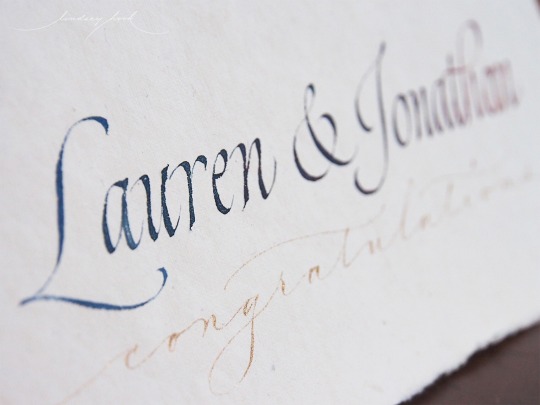 lindsey park
Lauren & Jonathan
congratulations